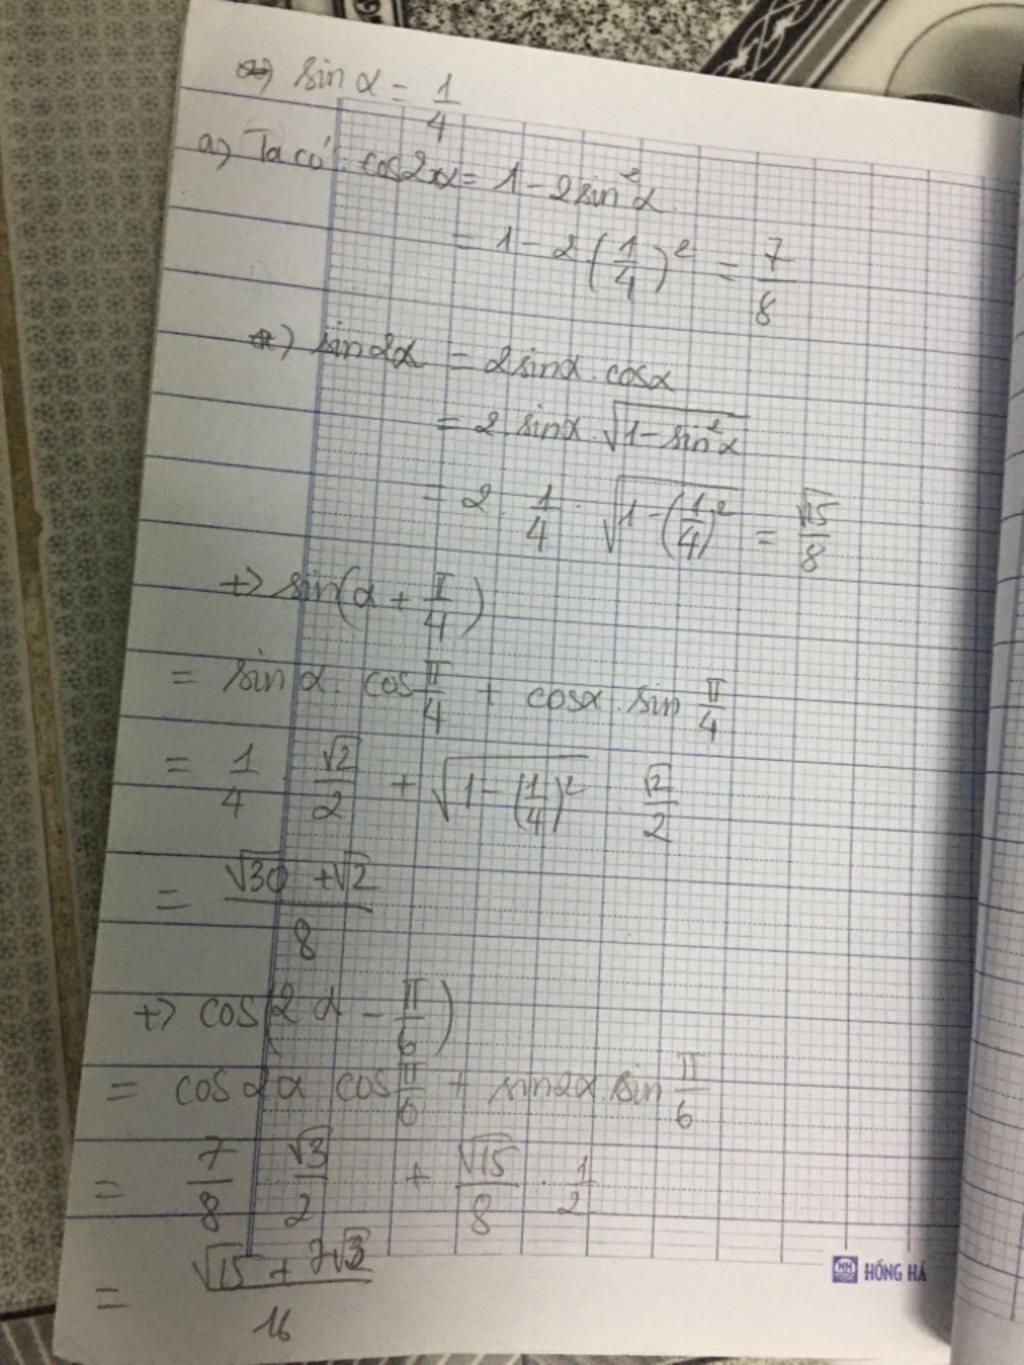 +) sin α = 1/4
a) Ta có: cos2α = 1 - 2sin²α
= 1 - 2(1/4)² = 7/8
+) sin2α = 2sinα.cosα
= 2.sinα.√(1-sin²α)
= 2.1/4.√(1-(1/4)²) = √15/8
+) sin(α + π/4)
= sinα.cos π/4 + cosα.sin π/4
= 1/4 . √2/2 + √(1-(1/4)²) . √2/2
= (√30 + √2)/8
+) cos(2α - π/6)
= cos2α.cos π/6 + sin2α.sin π/6
= 7/8 . √3/2 + √15/8 . 1/2
= (√15 + 7√3)/16
HH HỒNG HÀ